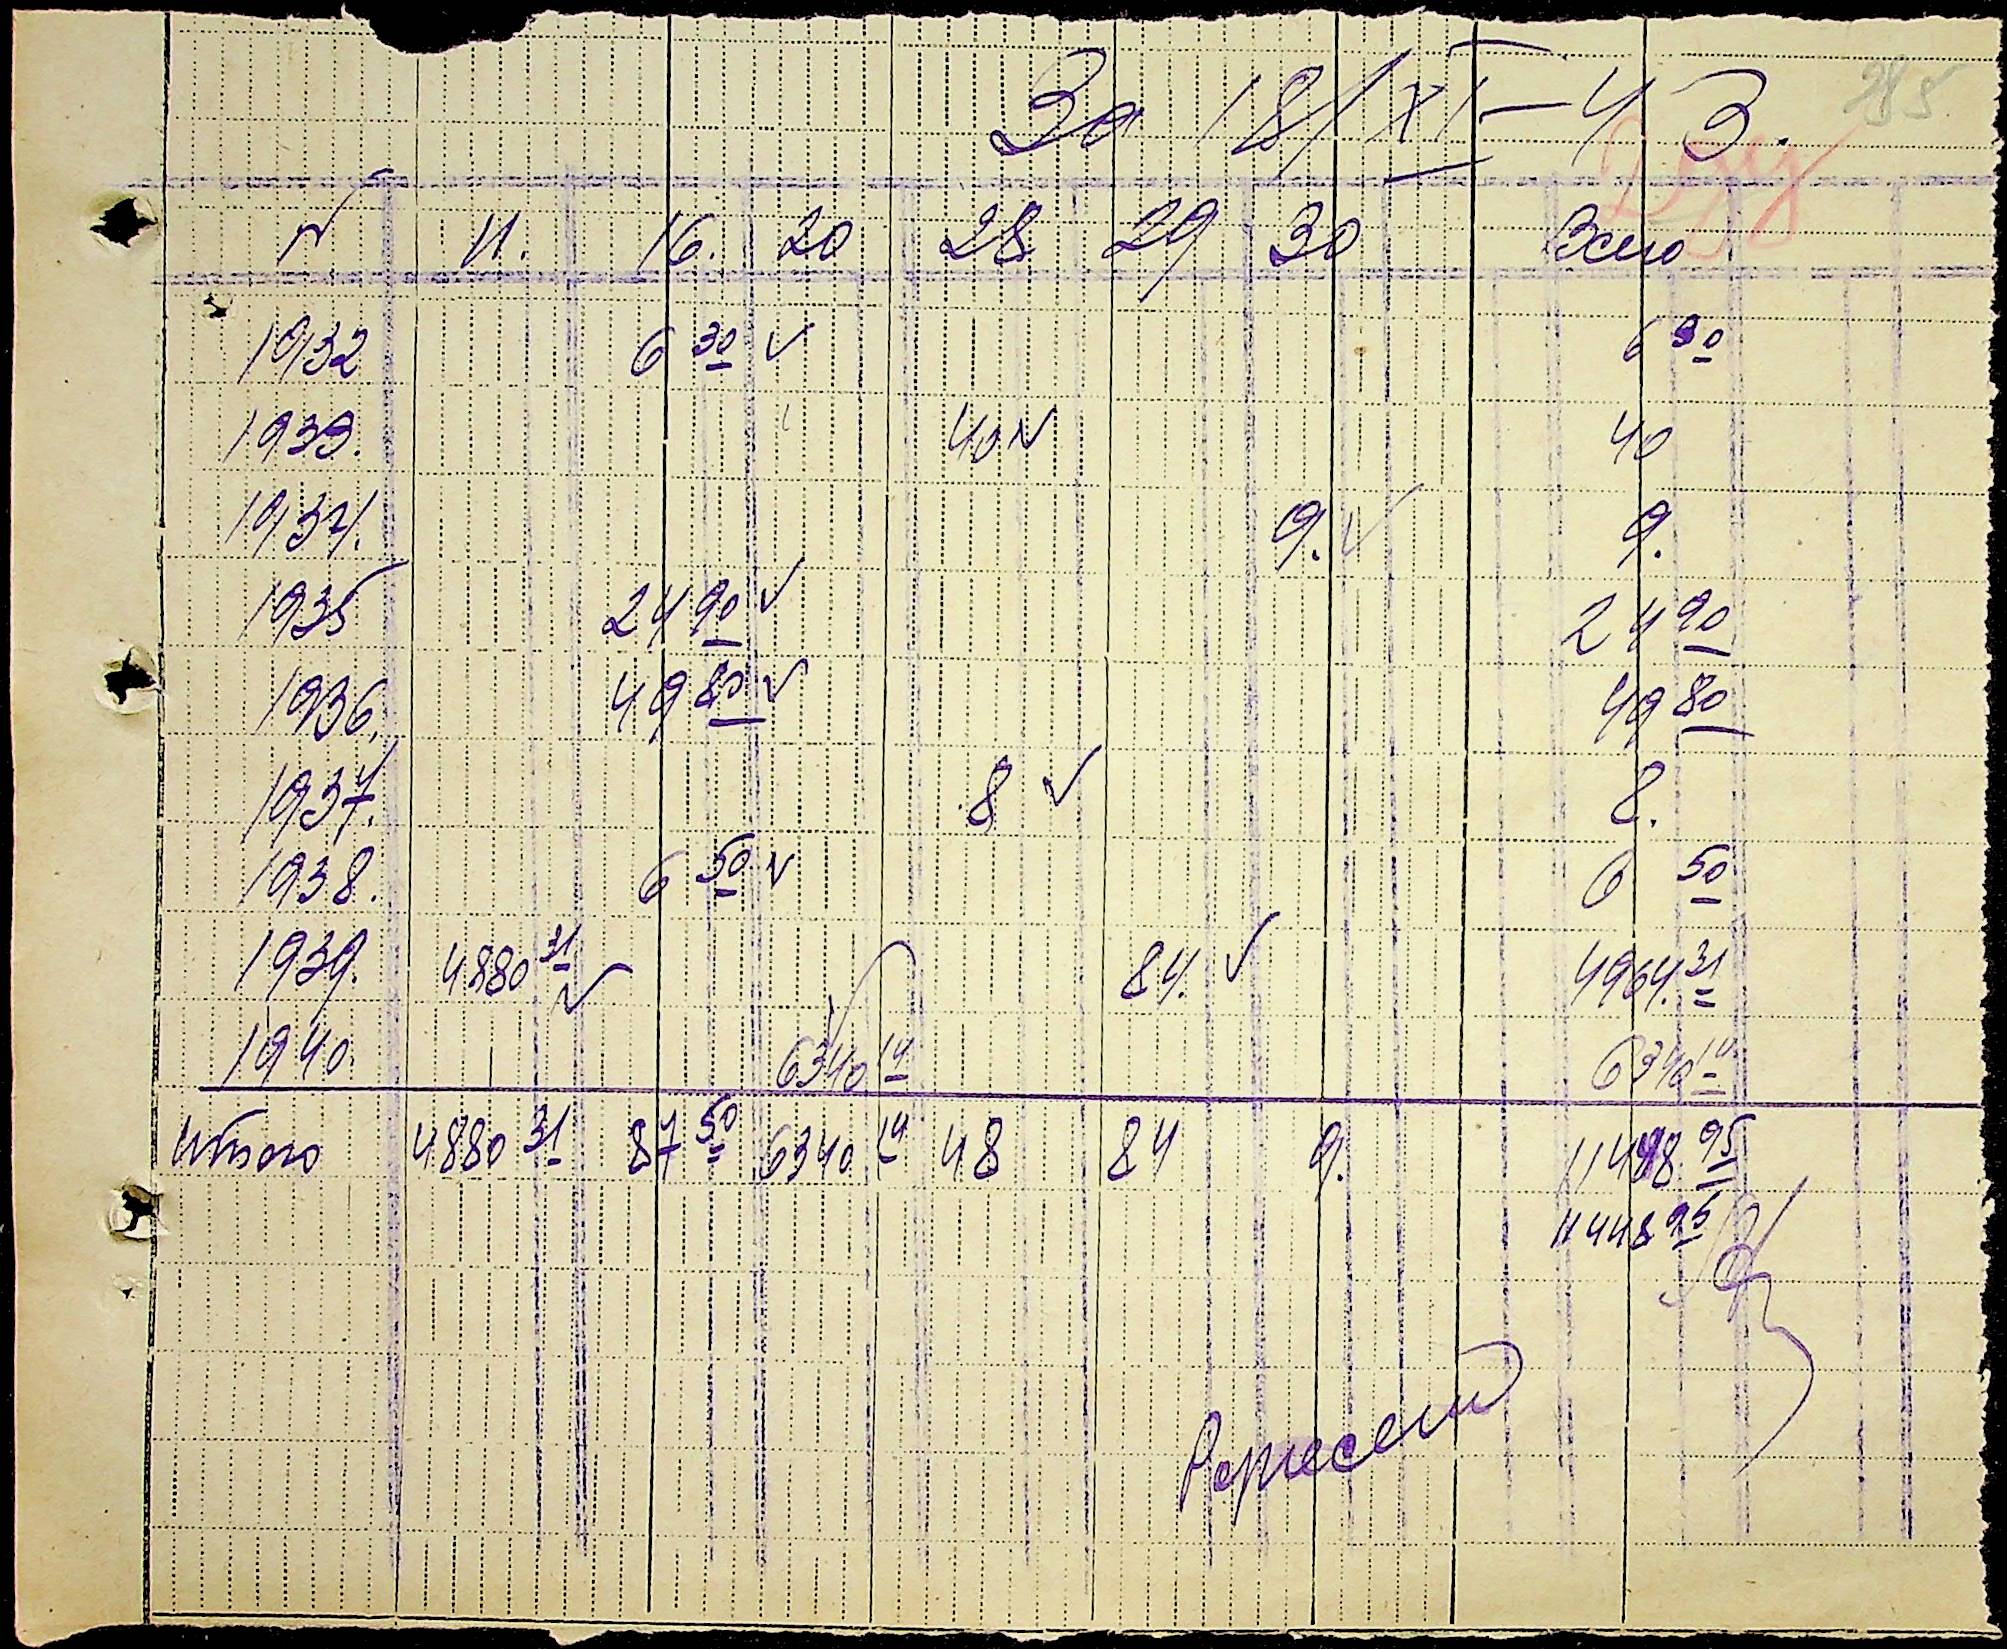 285
За 18/XI-43.
№ 11. 16. 20 28 29 30 Всего
1932 6 30 6 30
1933. 40 40
1934. 9. 9.
1935 24 90 24 90
1936. 49 80 49 80
1937. 8 8.
1938. 6 50 6 50
1939. 4880 31 84. 4964. 31
1940 6340 14 6340 14
Итого 4880 31 87 50 6340 14 48 84 9. 11448 95
11448 95